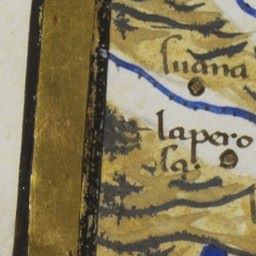 suana
lapero
la